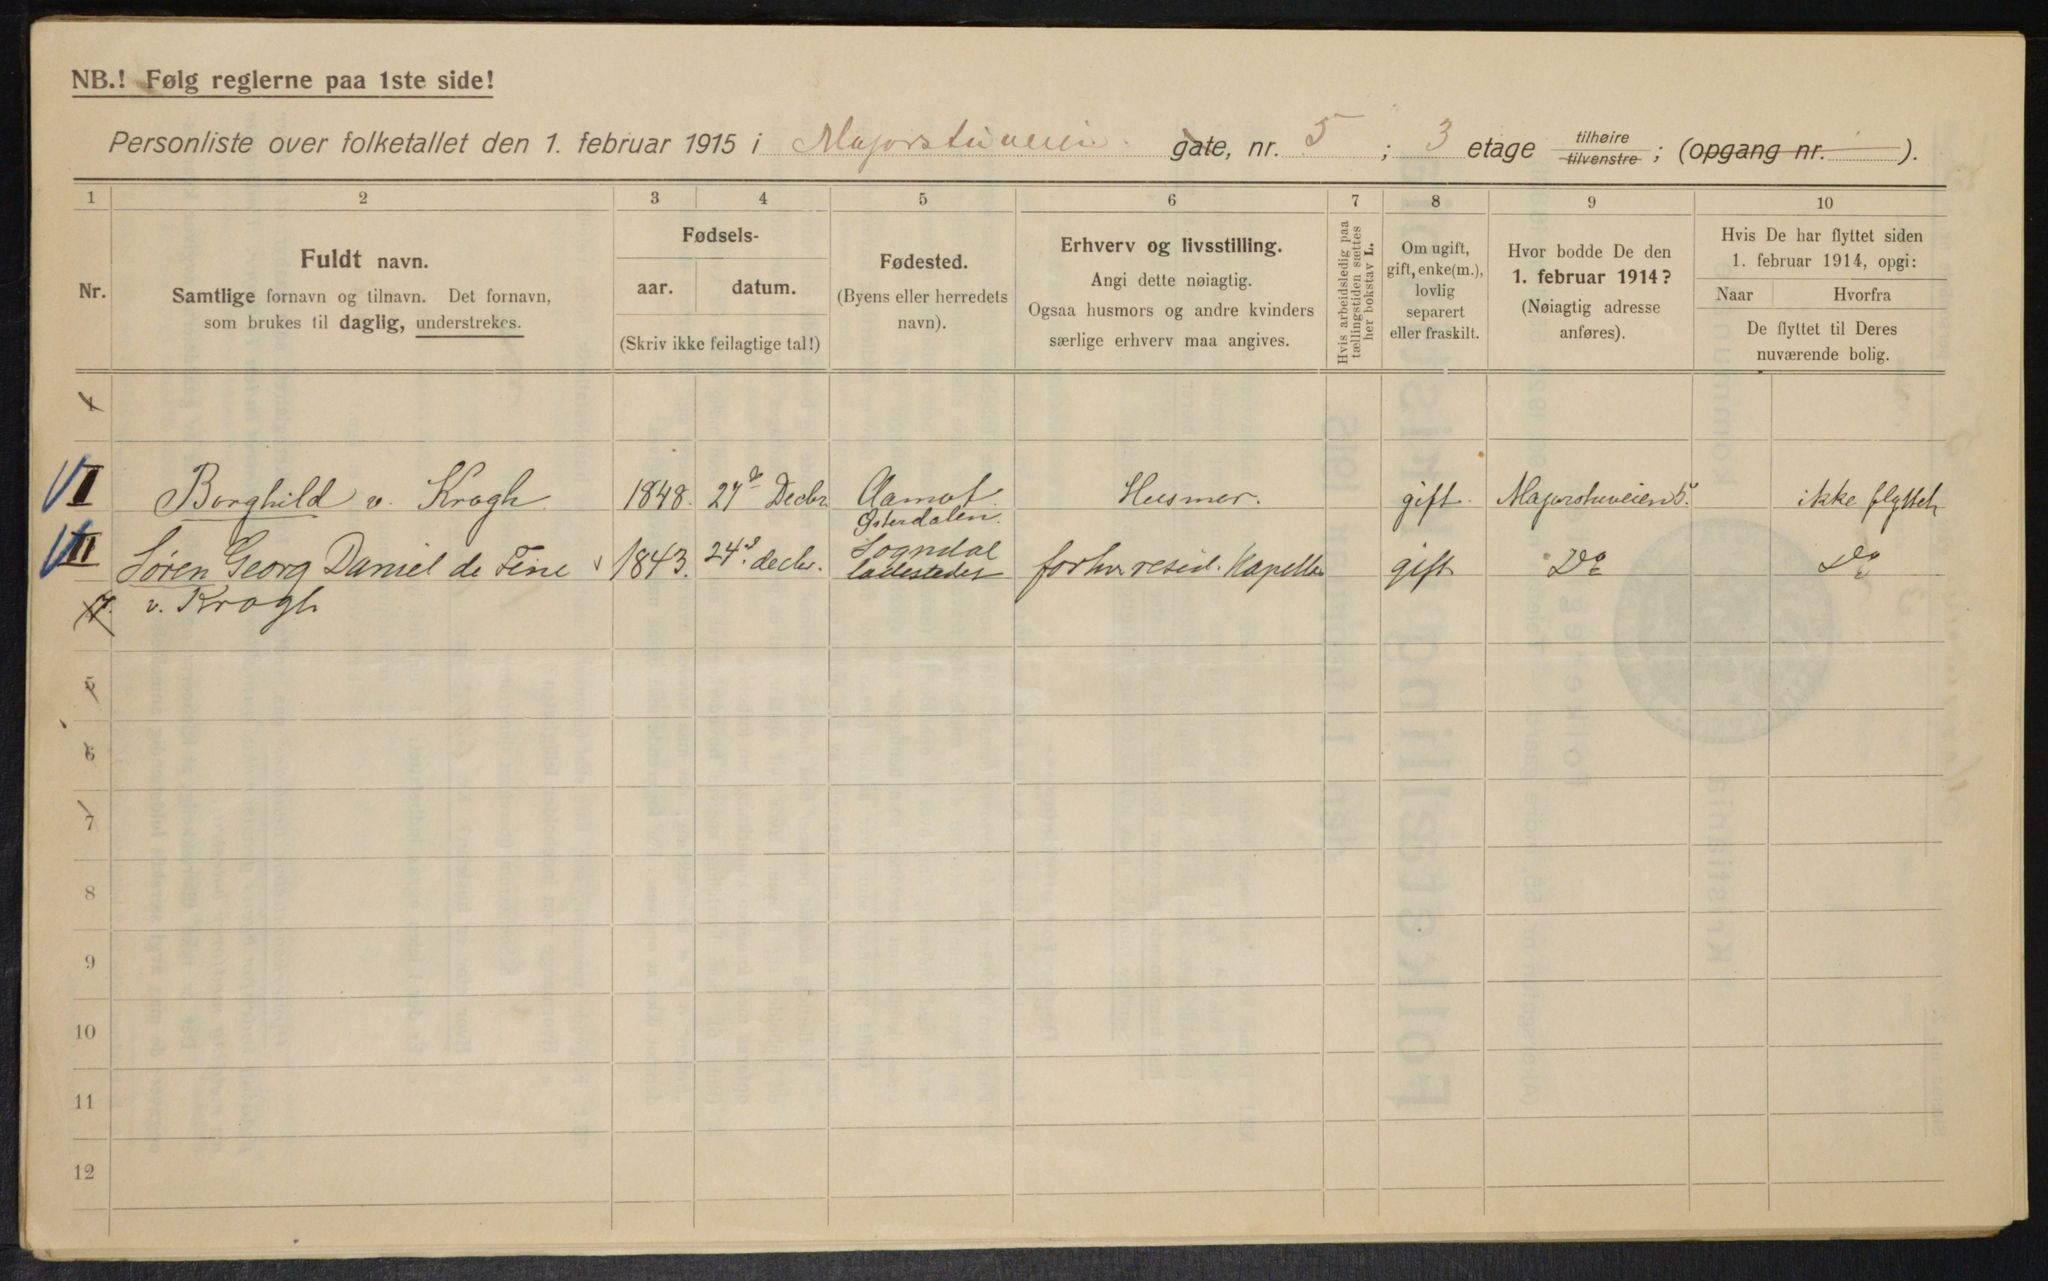 NB.! Følg reglerne paa 1ste side!
Personliste over folketallet den 1. februar 1915 i Majorstuveien gate, nr. 5 ; 3 etage tilhøire tilvenstre ; (opgang nr. ).
1 2 3 4 5 6 7 8 9 10
Nr.
Fuldt navn.
Samtlige fornavn og tilnavn. Det fornavn,
som brukes til daglig, understrekes.
Fødsels-
aar. datum.
(Skriv ikke feilagtige tal!)
Fødested.
(Byens eller herredets
navn).
Erhverv og livsstilling.
Angi dette nøiagtig.
Ogsaa husmors og andre kvinders
særlige erhverv maa angives.
Hvis arbeidsledig paa
tællingstiden sættes
her bokstav L.
Om ugift,
gift, enke(m.),
lovlig
separert
eller fraskilt.
Hvor bodde De den
1. februar 1914?
(Nøiagtig adresse
anføres).
Hvis De har flyttet siden
1. februar 1914, opgi:
Naar Hvorfra
De flyttet til Deres
nuværende bolig.
1
II Borghild v. Krogh 1848. 27 Decbr. Aamot Husmor. gift. Majorstuveien 5. ikke flyttet
Østerdalen.
III Søren Georg Daniel de Fine 1843. 24 decbr. Sogndal forhv. resid. Kapellan gift Do Do
ladestedet
v. Krogh
5
6
7
8
9
10
11
12